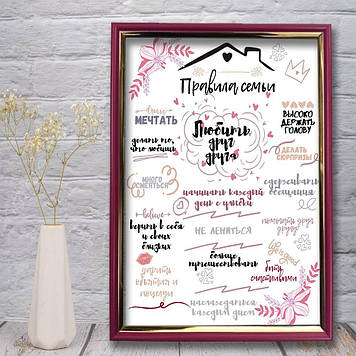 Правила семьи
МЕЧТАТЬ
Любить
друг
друга
ВЫСОКО
ДЕРЖАТЬ
ГОЛОВУ
делать то,
что любишь
ДЕЛАТЬ
СЮРПРИЗЫ
МНОГО
СМЕЯТЬСЯ
сдерживать
обещания
начинать каждый
день с улыбки
believe
верить в себя
и своих
близких
НЕ ЛЕНИТЬСЯ
помогать друг
другу
больше
путешествовать
be good
дарить
объятия и
поцелуи
быть
счастливыми
наслаждаться
каждым днем